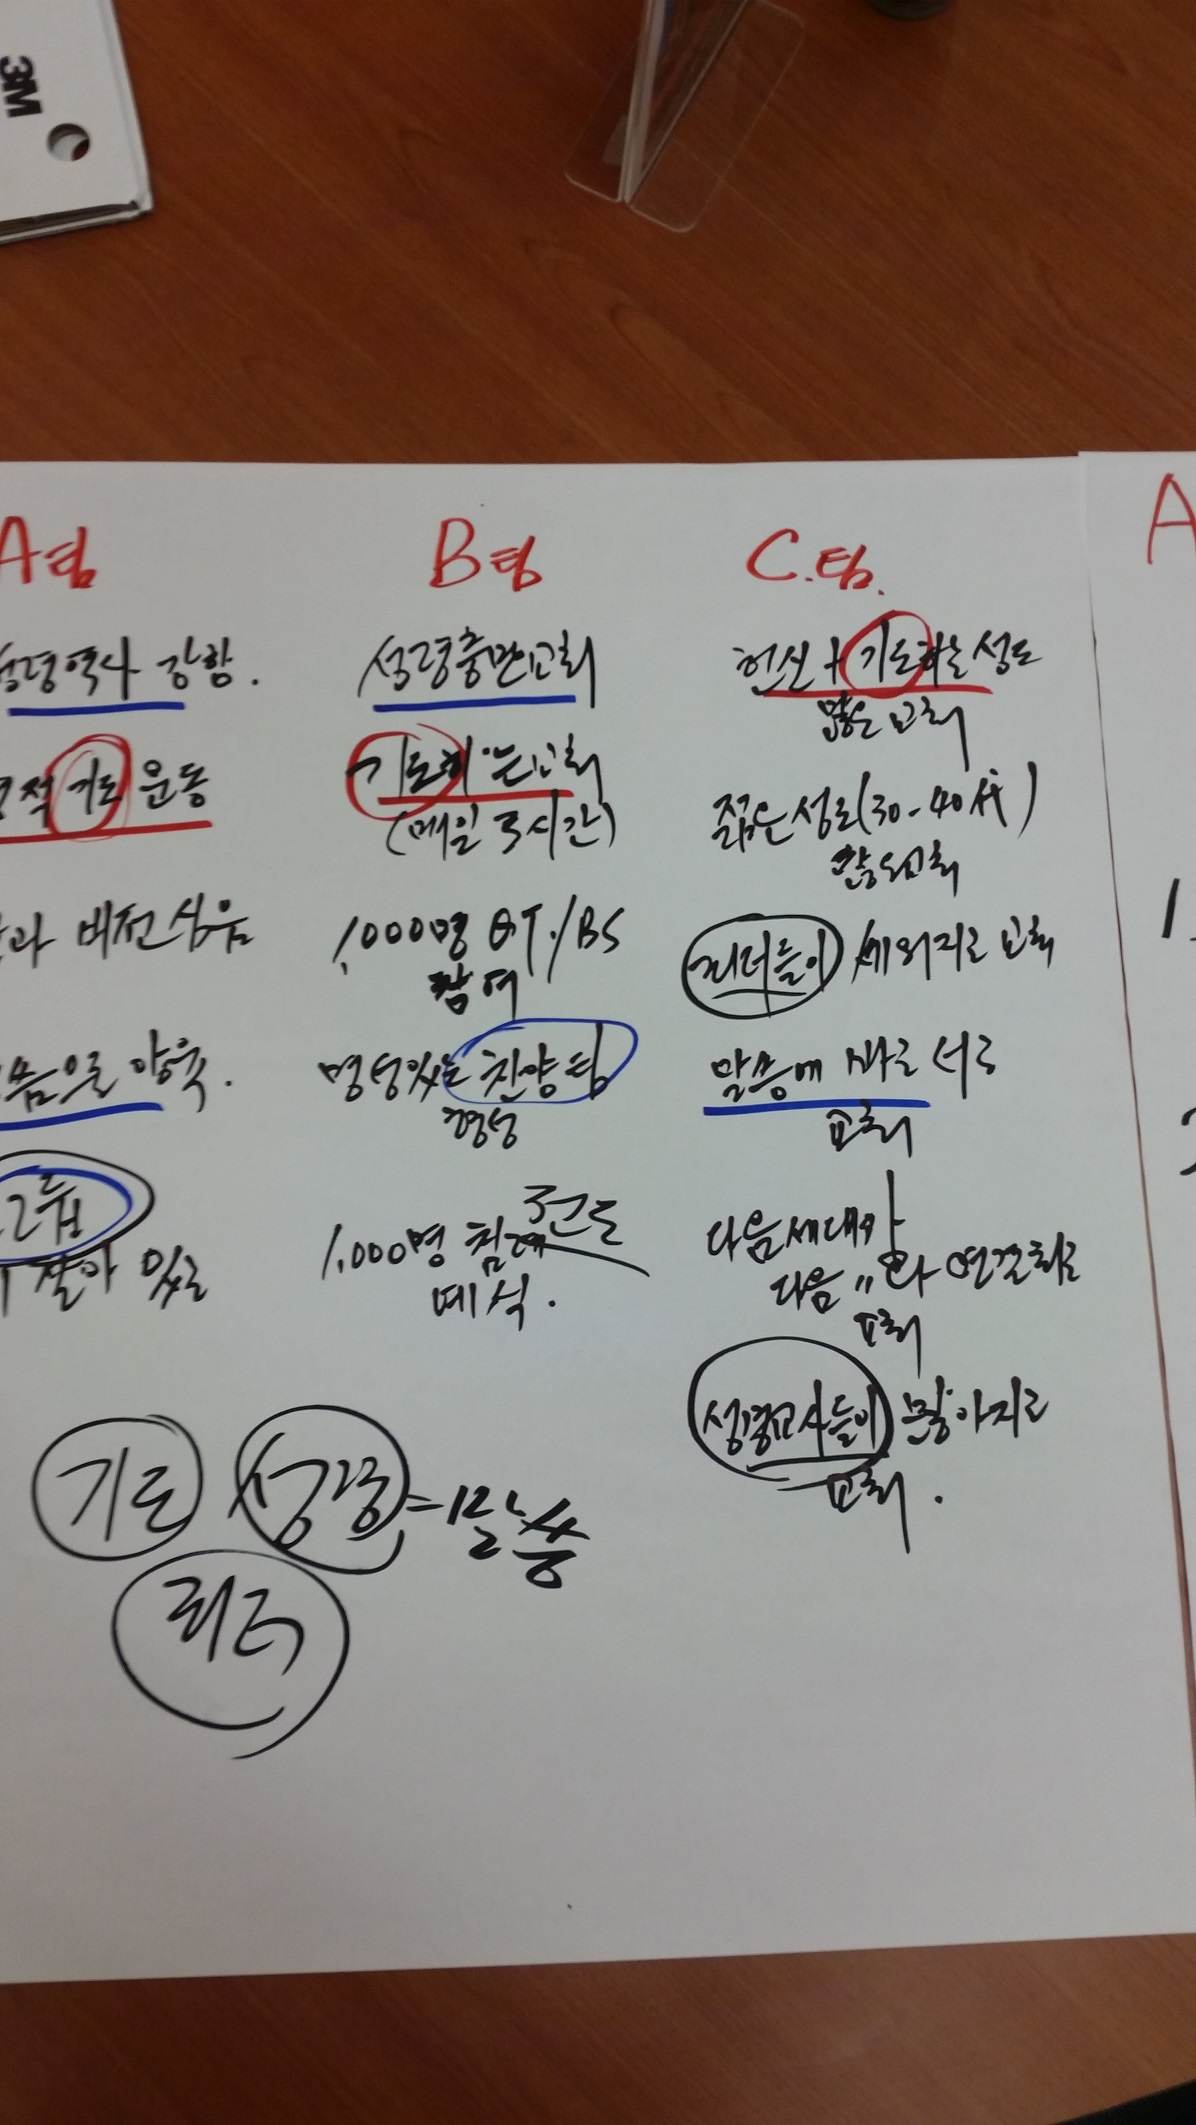 3M
A팀
성령역사 강함.
기도 운동
비전심음
으로 양육.
그룹
살아 있는
B팀
성령충만교회
기도하는교회
(매일 3시간)
1,000명 QT./BS
참여
명성있는 찬양팀
형성
전도
1,000명 침례
예식.
C.팀.
헌신+기도하는 성도
많은 교회
젊은성도(30-40代)
많은교회
리더들이 세워지는 교회
말씀에 바로 서는
교회
다음세대와
다음 〃 과 연결되는
교회
성경교사들이 많아지는
교회.
기도 성경=말씀
리더
A
1.